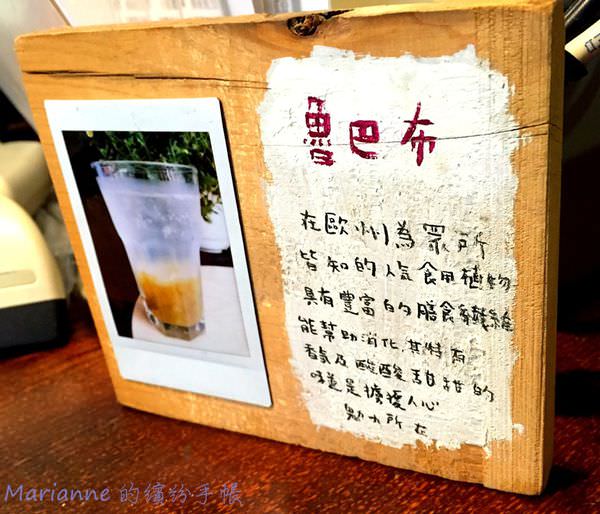 魯巴布
在歐州為眾所
皆知的人氣食用植物
具有豐富的膳食纖維
能幫助消化,其特有
香氣及酸酸甜甜的
味道是擄獲人心
魅力所在
Marianne 的繽紛手帳